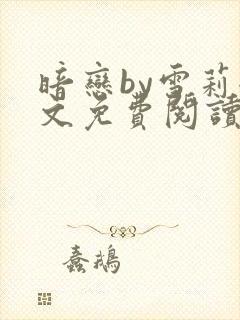 暗戀by雪莉
文免費閱讀
蠢鵝